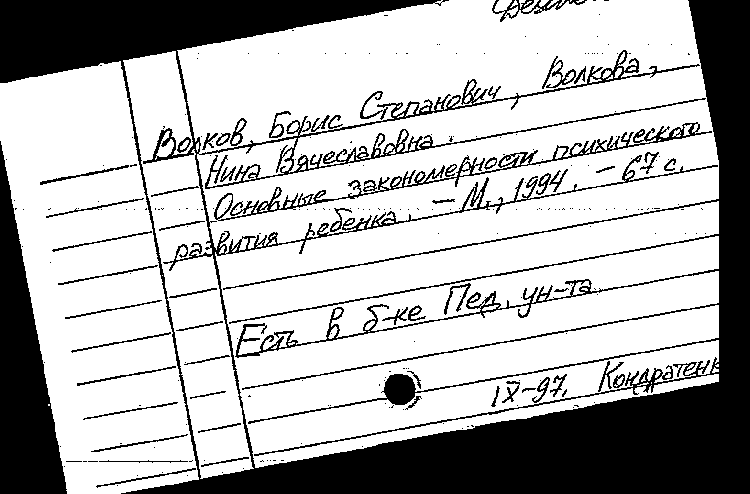 Волков, Борис Степанович, Волкова,
Нина Вячеславовна.
Основные закономерности психического
развития ребенка. – М., 1994. – 67 с.
Есть в б-ке Пед. ун-та.
IX-97. Кондратенк